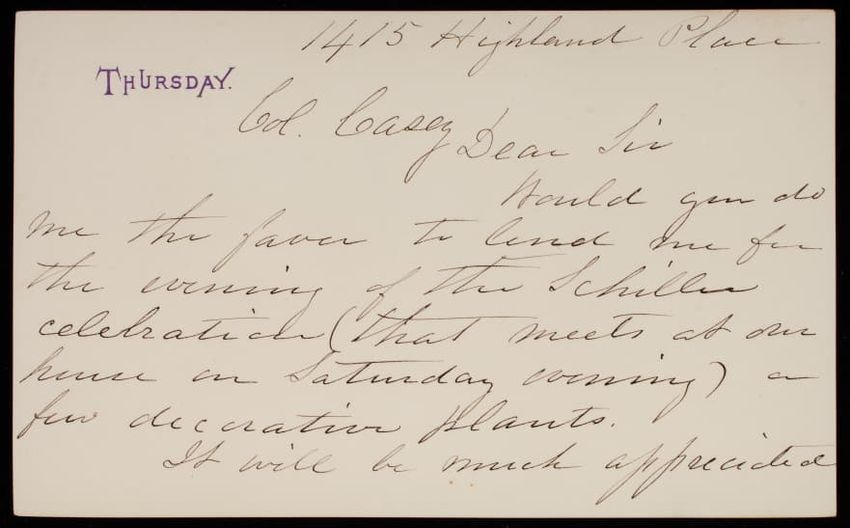 1415 Highland Place
THURSDAY.
Col. Casey
Dear Sir
Would you do
me the favor to lend me for
the evening of the Schiller
celebration (that meets at our
house on Saturday evening) a
few decorative plants.
It will be much appreciated